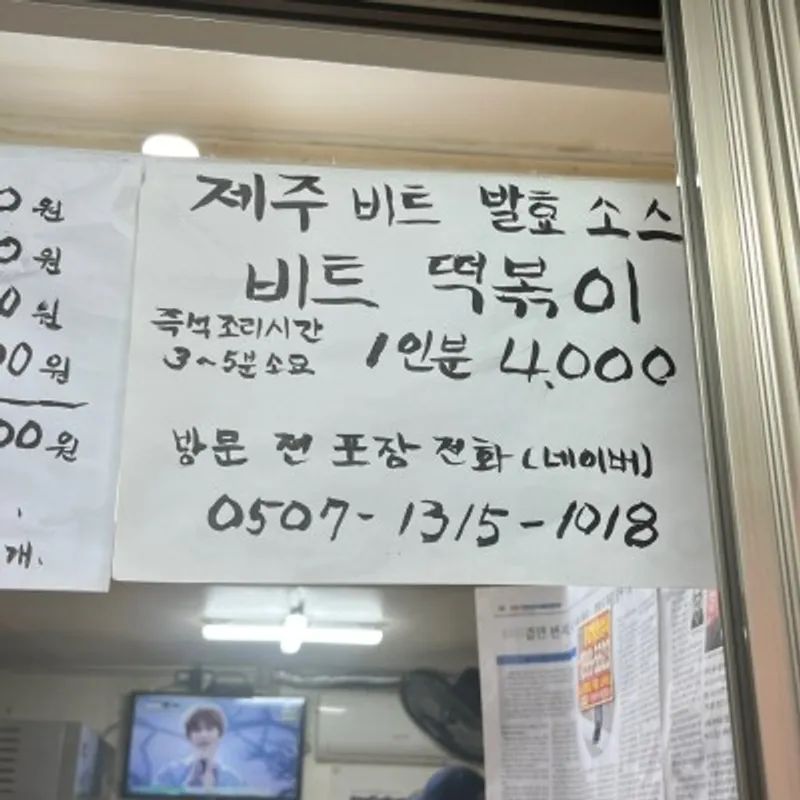 0원
0원
0원
00원
00원
개.
제주 비트 발효 소스
비트 떡볶이
즉석조리시간
3~5분소요
1인분 4,000
방문 전 포장 전화(네이버)
0507-1315-1018